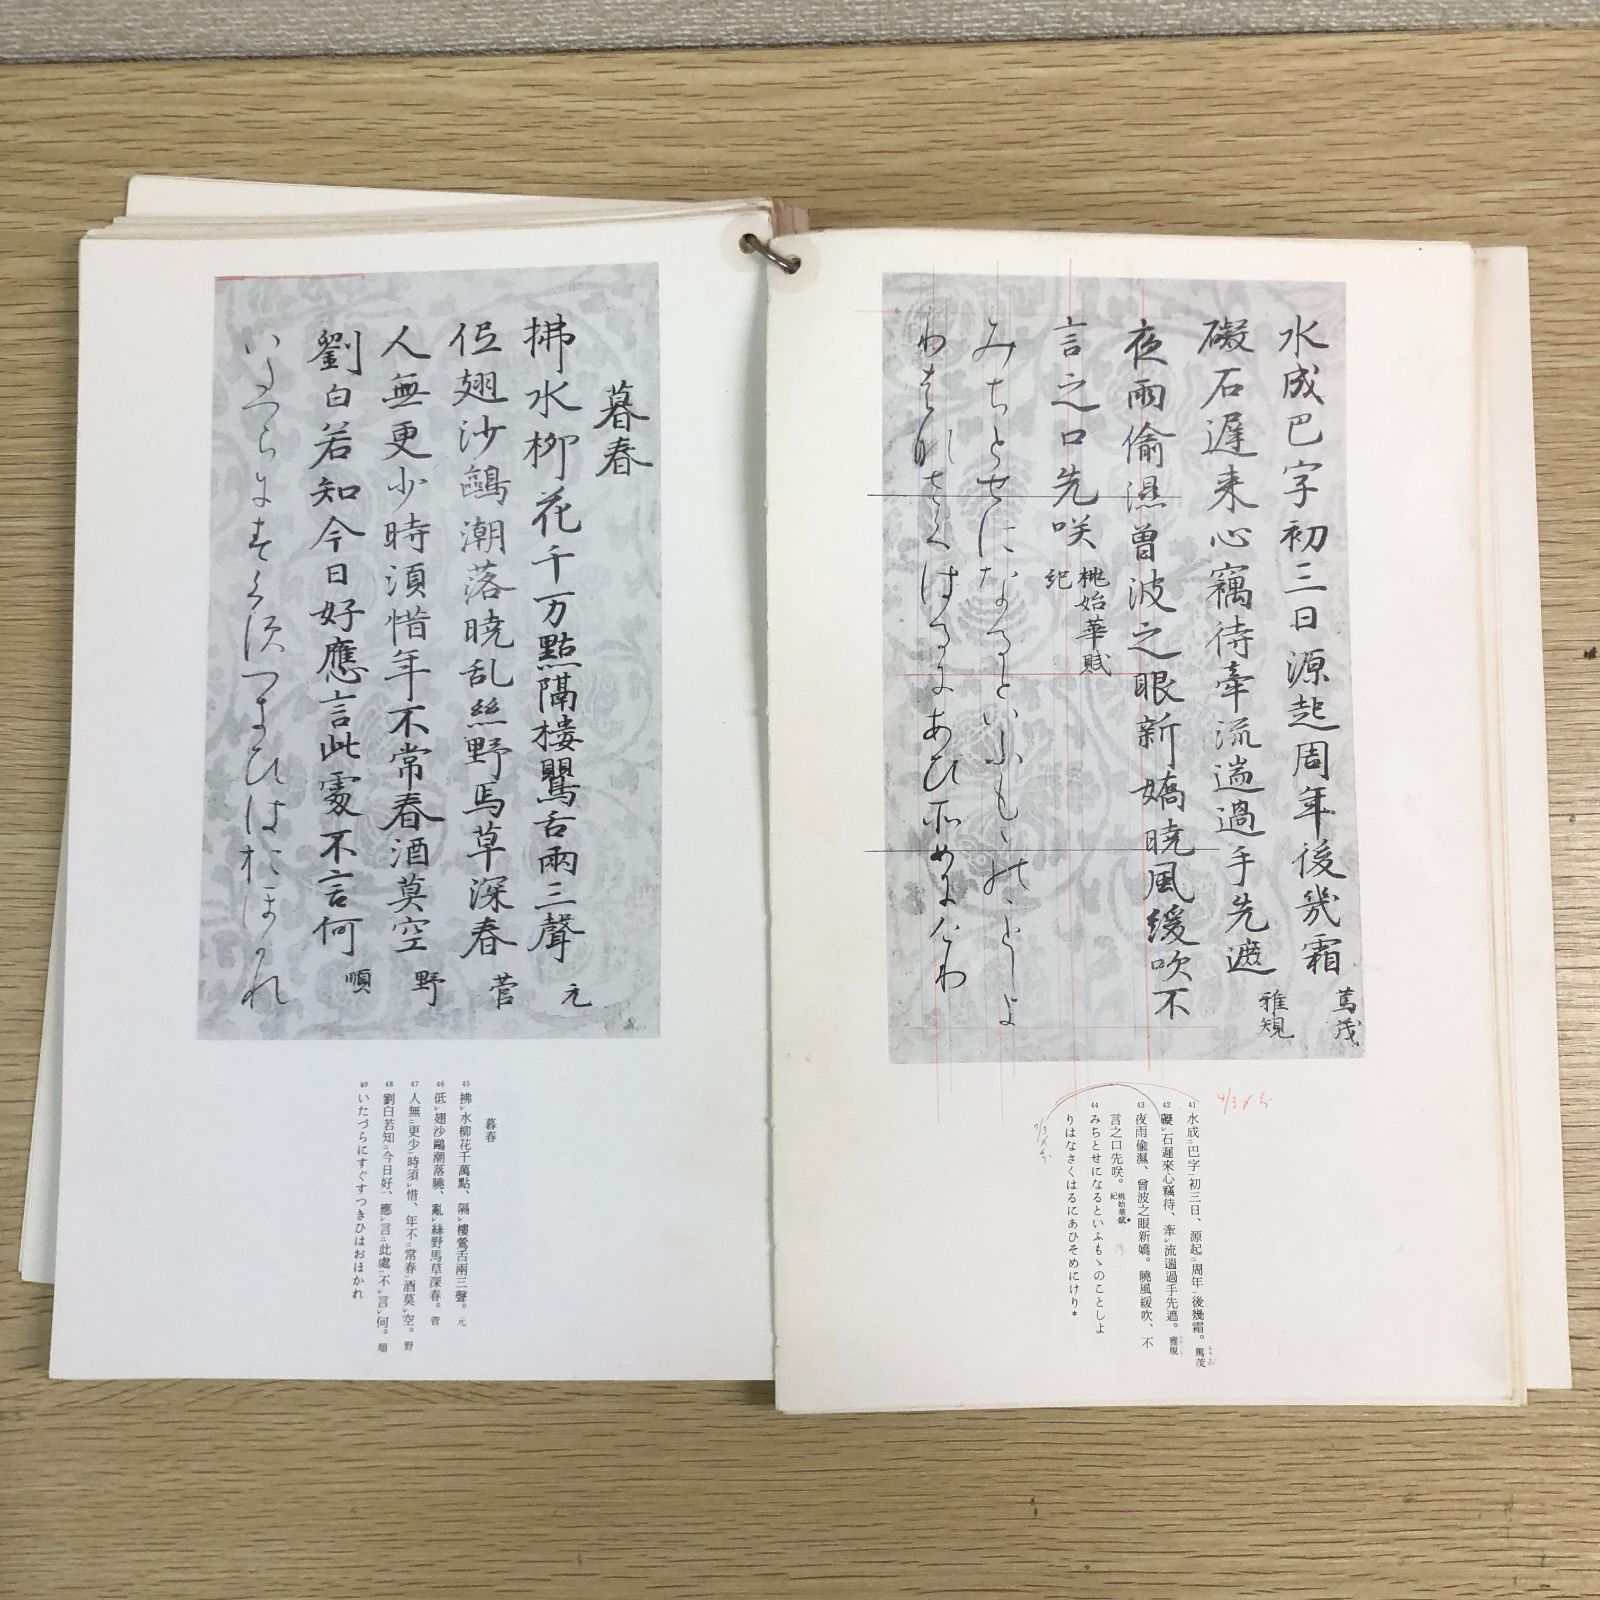 水成巴字初三日源起周年後幾霜 篤茂
礙石遅来心竊待牽流遄過手先遮 雅規
夜雨偸濕曽波之眼新嬌暁風緩吹不
言之口先咲 桃始華賦
紀
みちとせになるといふもゝのことしよ
わはなさくはるにあひそめにけり
41 水成巴字初三日、源起周年後幾霜。 篤茂
42 礙石遲來心竊待、牽流遄過手先遮。 雅規
43 夜雨偸濕、曾波之眼新嬌。曉風緩吹、不
言之口先咲。 桃始華賦 紀
44 みちとせになるといふもゝのことしよ
りはなさくはるにあひそめにけり*
暮春
拂水柳花千万點隔楼鸎舌兩三聲 元
低翅沙鷗潮落暁乱絲野馬草深春 菅
人無更少時須惜年不常春酒莫空 野
劉白若知今日好應言此處不言何 順
いたつらにすくす月ひはおほかれ
暮春
45 拂水柳花千萬點、隔樓鶯舌兩三聲。 元
46 低翅沙鷗潮落曉、亂絲野馬草深春。 菅
47 人無更少時須惜、年不常春酒莫空。 野
48 劉白若知今日好、應言此處不言何。 順
49 いたづらにすぐすつきひはおほかれ